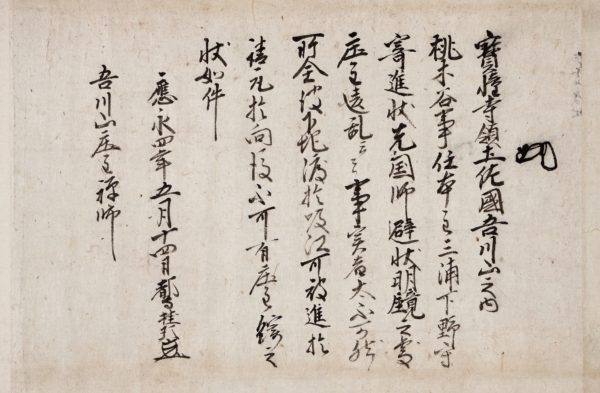 寳幢寺領土佐國吾川山之内
桃木谷事任本主三浦下野守
寄進状先国師避状明鏡之處
庄主違乱云々事実者太不可然
所全彼下地渡於吸江可被進於
禧元於向後不可有庄主綺之
状如件
應永四年五月十四日
吾川山庄主禅師